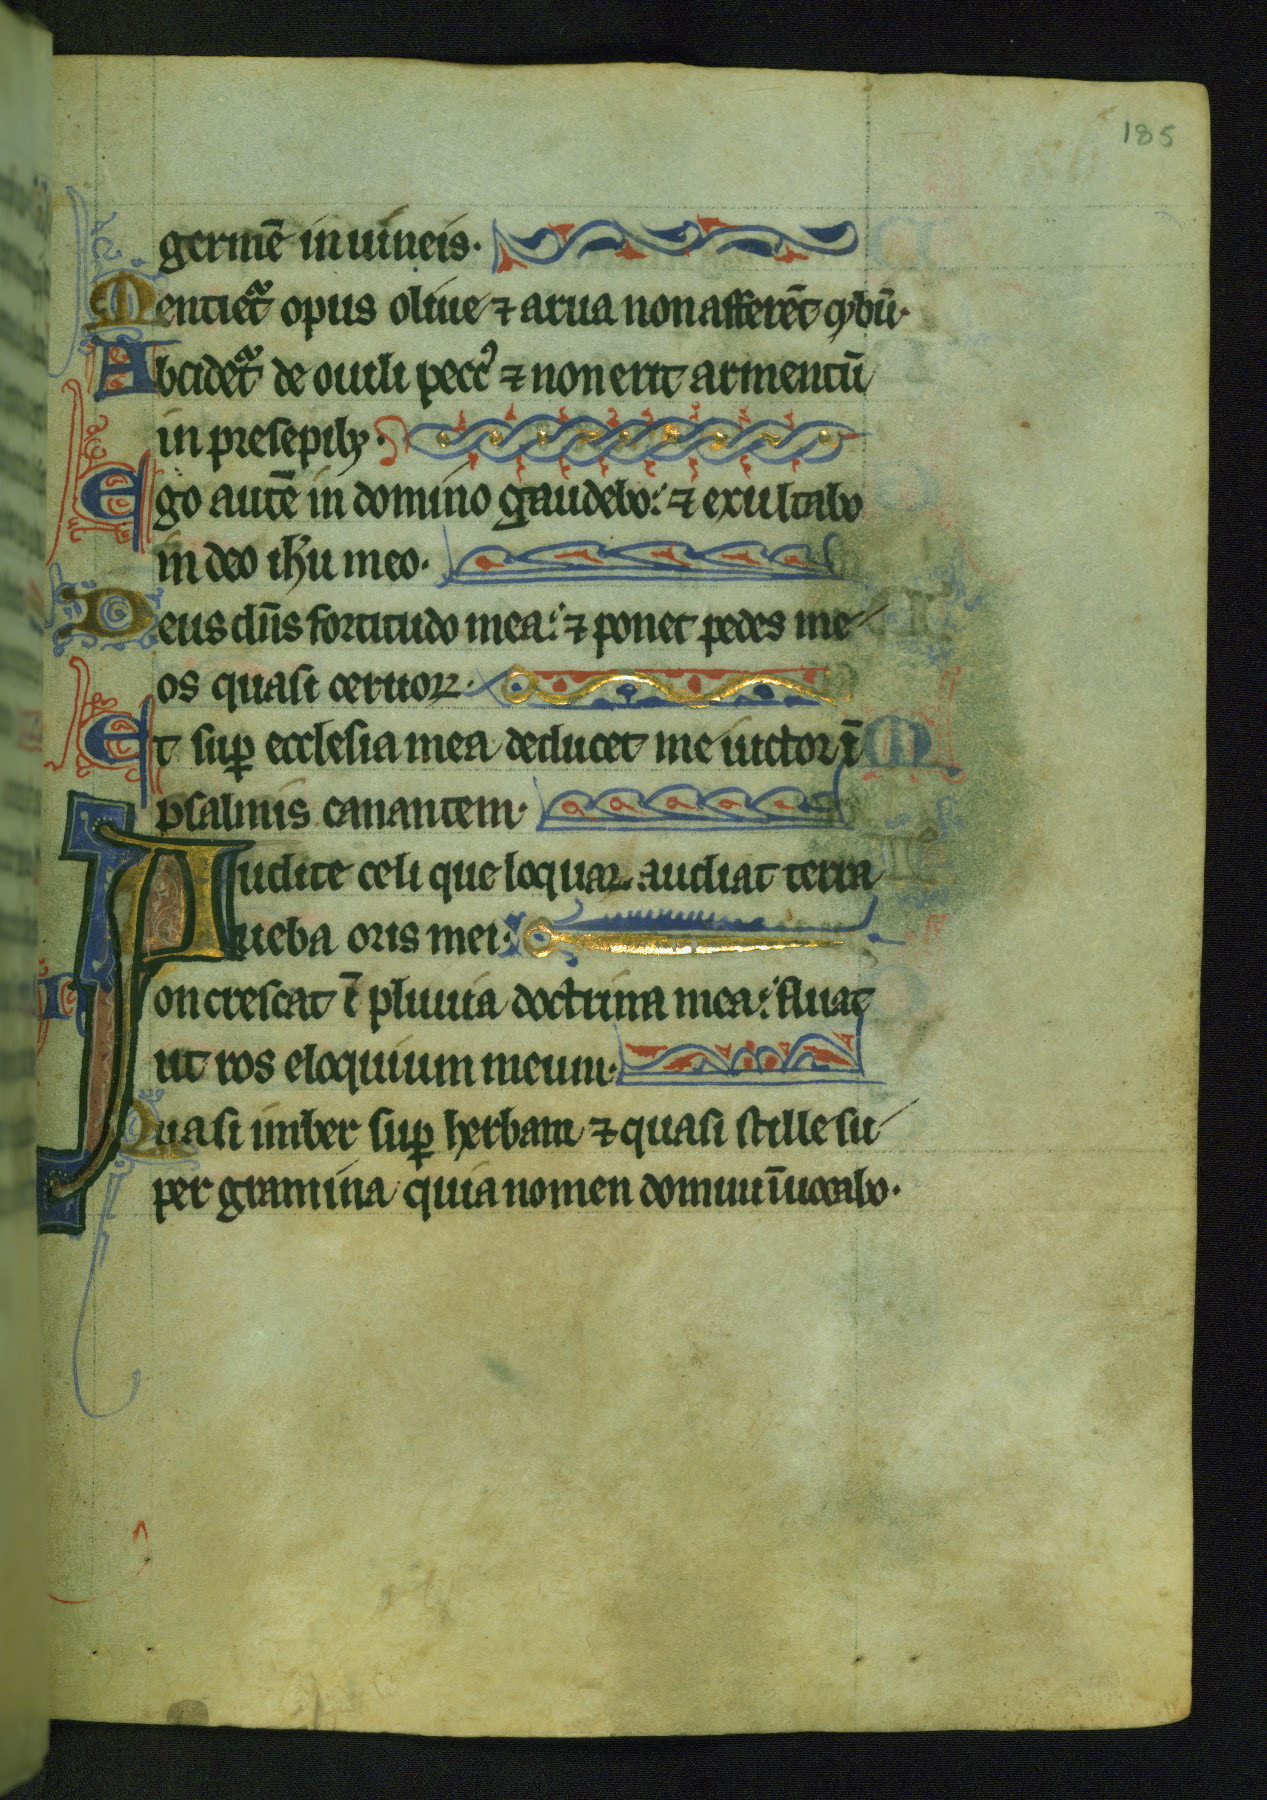 185
germē in uineis.
Mentiet᷑ opus oliue ⁊ arua non afferēt cybū.
Abcidet᷑ de ouili pecꝰ ⁊ non erit armentū
in presepibꝫ.
Ego autē in domino gaudebo: ⁊ exultabo
in deo ihu meo.
Deus dn̄s fortitudo mea: ⁊ ponet pedes me
os quasi ceruoꝝ.
Et suꝑ ecclesia mea deducet me uictor ī
psalmis canantem.
Audite celi que loquar. audiat terra
ueba oris mei.
Concrescat ī pluuia doctrina mea: fluat
ut ros eloquium meum.
Quasi imber suꝑ herbam ⁊ quasi stille su
per gramina quia nomen domini īuocabo.